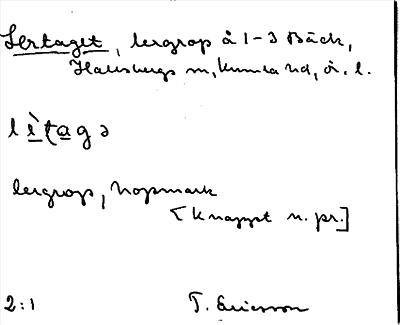 Lertaget, lergrop å 1-3 Bäck,
Hallsbergs sn, Kumla hd, ö. l.
l è̱ṯa̱gə
lergrop, hopmark
[knappt n. pr.]
2:1 T. Ericsson